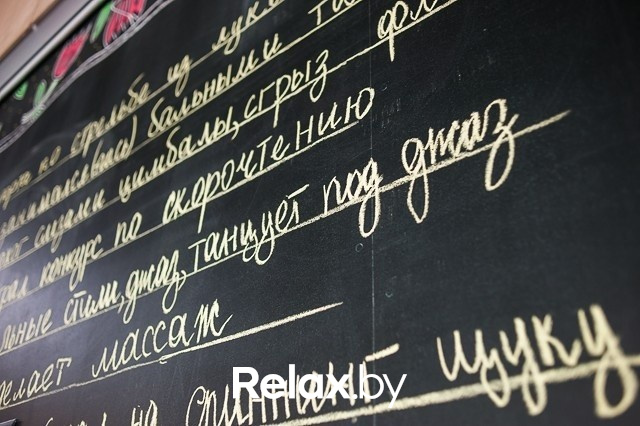 по стрельбе из лука
занимался(ась) бальными та
слушали цимбалы, сгрыз фл
конкурс по скорочтению
льные стили, джаз, танцует под джаз
делает массаж
на спиннинг щуку
Relax.by